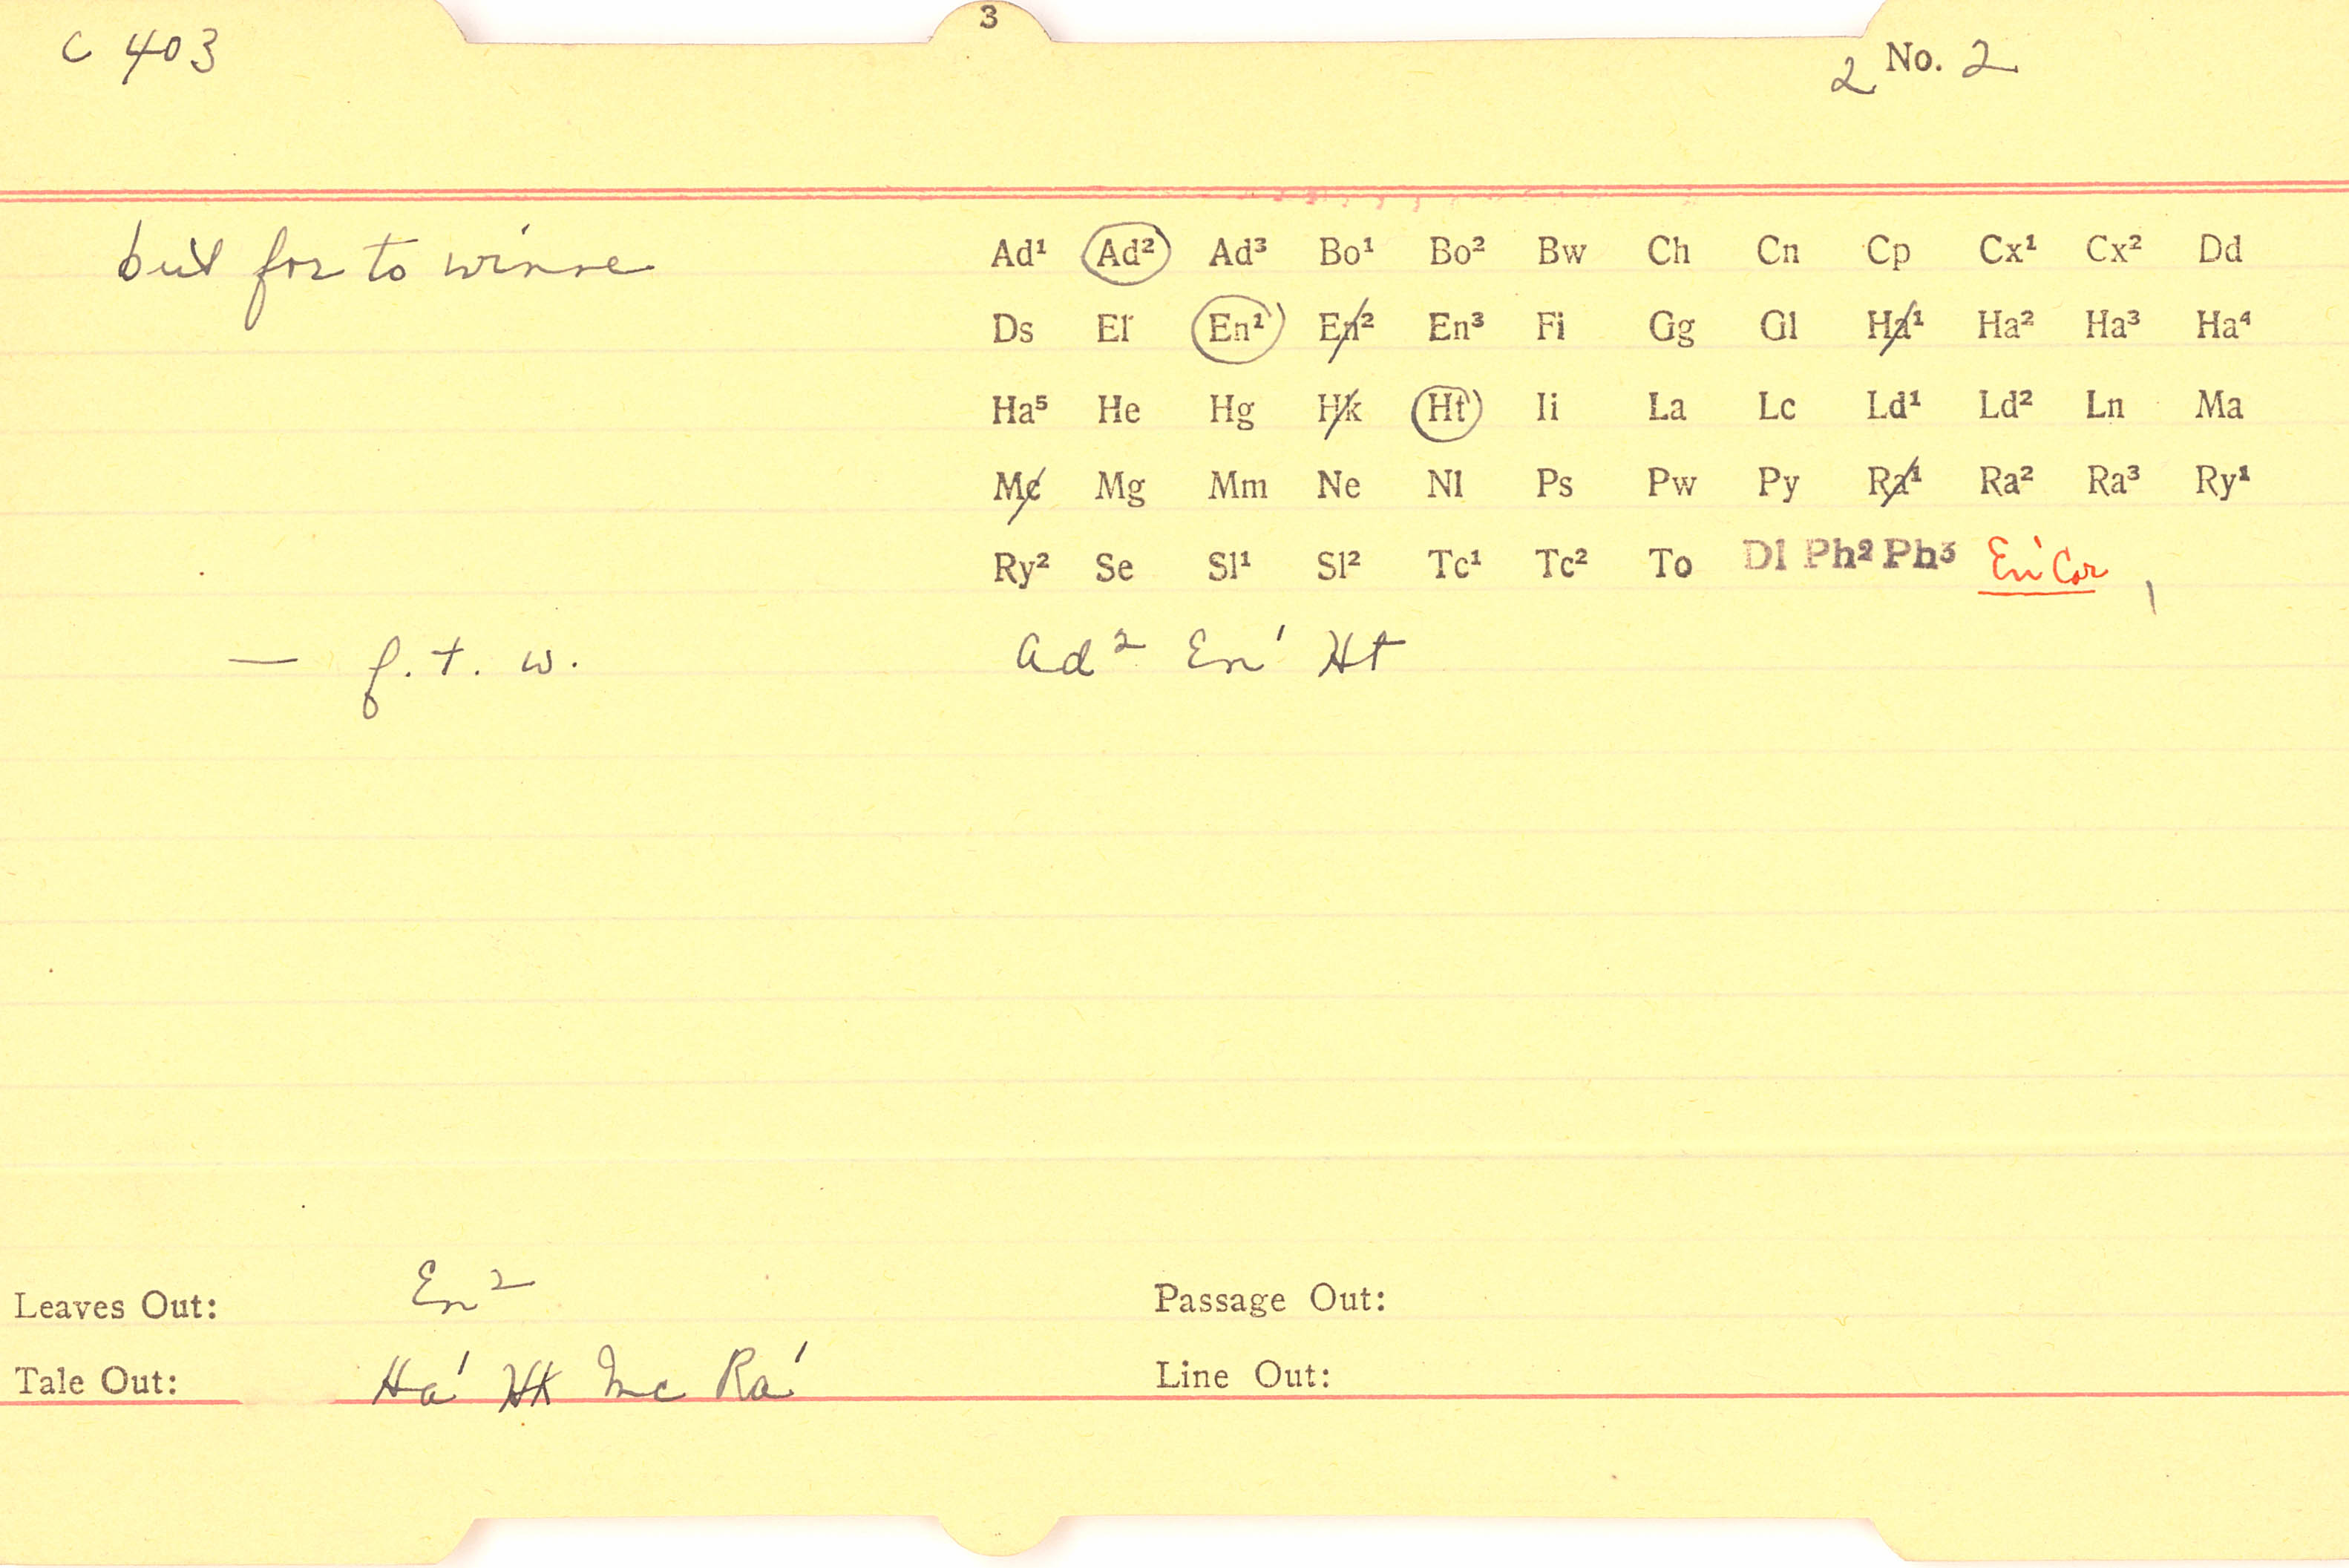 3
C 403
2 No. 2
but for to winne
Ad¹ Ad² Ad³ Bo¹ Bo² Bw Ch Cn Cp Cx¹ Cx² Dd
Ds El En¹ En² En³ Fi Gg Gl Ha¹ Ha² Ha³ Ha⁴
Ha⁵ He Hg Hk Ht Ii La Lc Ld¹ Ld² Ln Ma
Mc Mg Mm Ne Nl Ps Pw Py Ra¹ Ra² Ra³ Ry¹
Ry² Se Sl¹ Sl² Tc¹ Tc² To Dl Ph² Ph³ En¹ Cor
— f. t. w. Ad² En¹ Ht
Leaves Out: En² Passage Out:
Tale Out: Ha¹ Hk Mc Ra¹ Line Out: